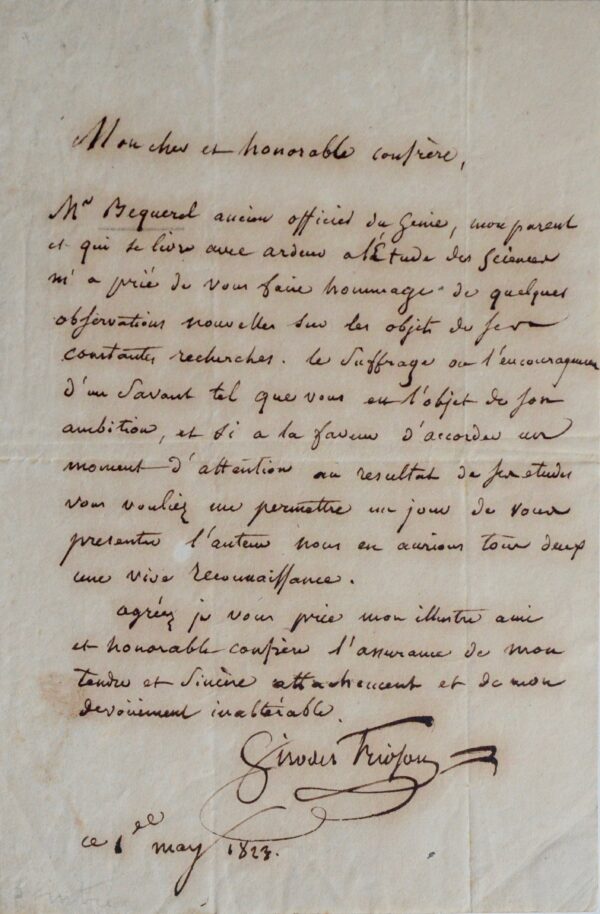 Mon cher et honorable confrère,
Mr Bequerel ancien officier du Genie, mon parent
et qui se livre avec ardeur a l'Étude des Sciences
m'a prié de vous faire hommage de quelques
observations nouvelles sur les objets de ses
constantes recherches. le Suffrage ou l'encouragement
d'un Savant tel que vous est l'objet de son
ambition, et si a la faveur d'accorder un
moment d'attention au resultat de ses etudes
vous vouliez me permettre un jour de vous
presenter l'auteur nous en aurions tous deux
une vive reconnaissance.
agréez je vous prie mon illustre ami
et honorable confrère l'assurance de mon
tendre et Sincère attachement et de mon
devoüement inaltérable.
Girodet Trioson
ce 1er may 1823.